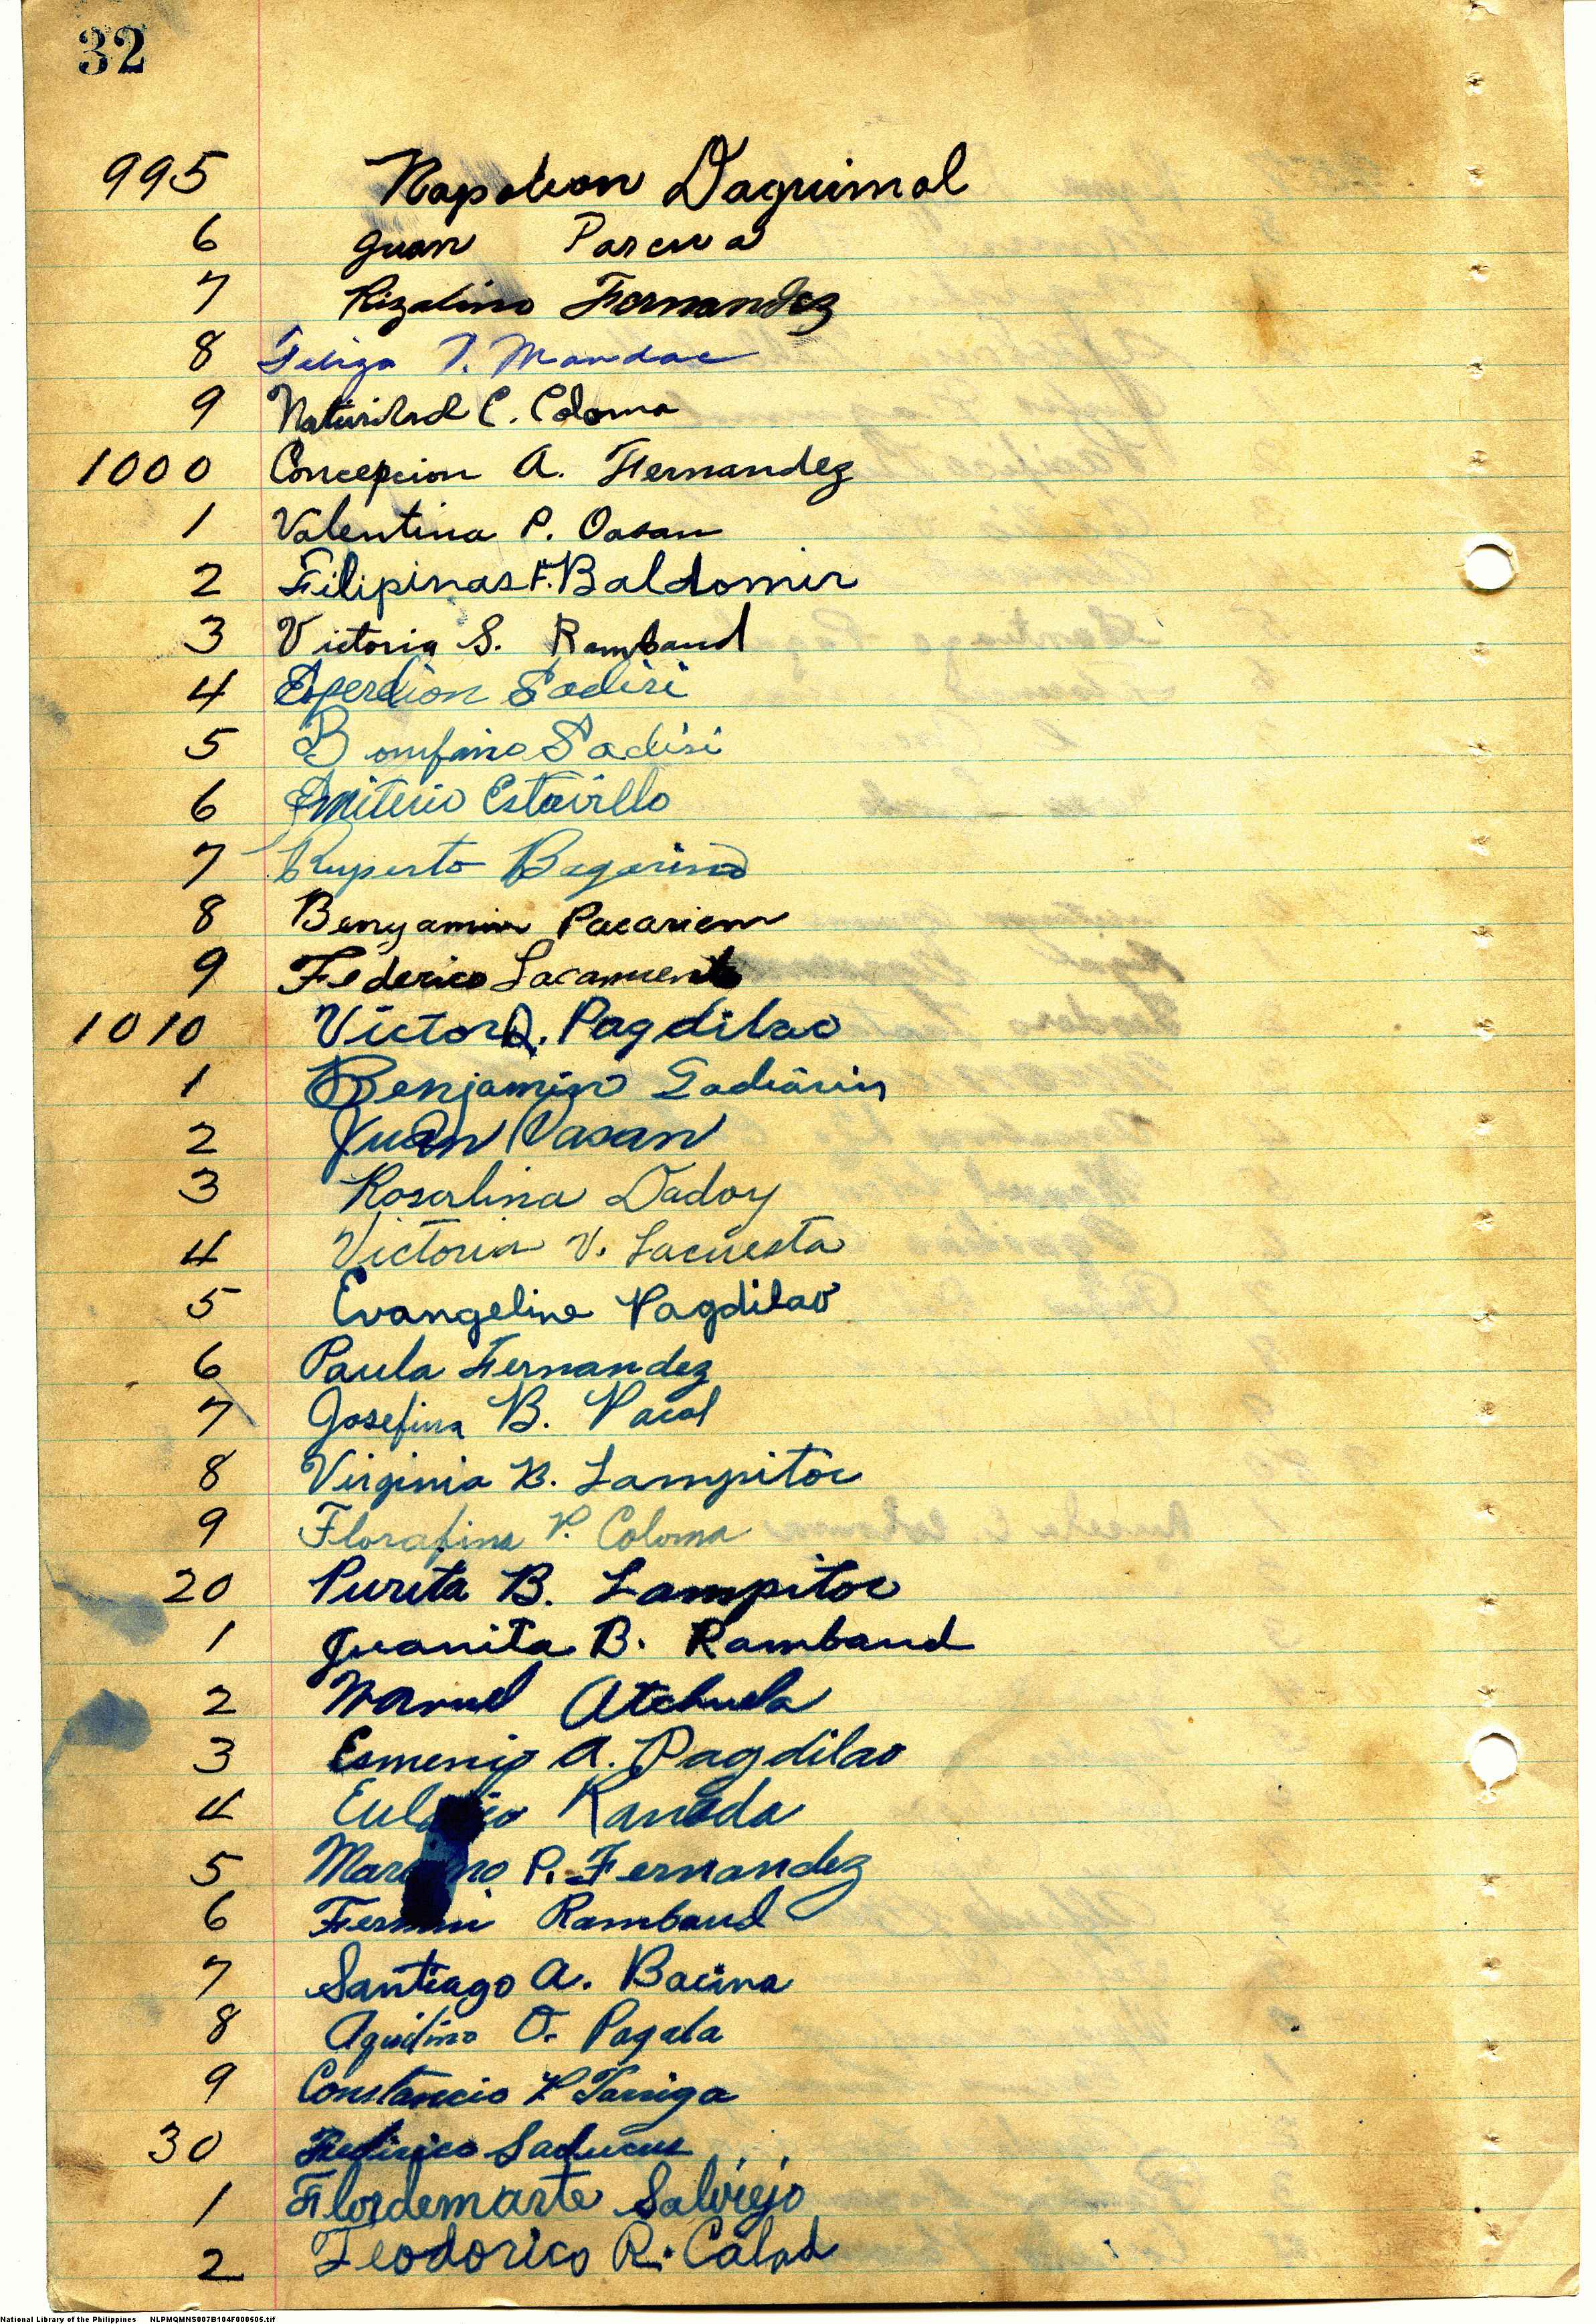 32
995 Napoleon Daguimol
6 Juan
7 Rizalino Fernandez
8 Feliza T. Mandac
9 Natividad C. Coloma
1000 Concepcion A. Fernandez
1 Valentina P. Oasan
2 Filipinas F. Baldomir
3 Victoria S. Rambaud
4 Sadiri
5 Sadiri
6 Emiterio Estavillo
7 Ruperto Bagarino
8 Benyamin Pacariem
9 Federico
1010 Victor Q. Pagdilao
1 Benjamin
2 Juan
3 Rosalina Dadoy
4 Victoria V. Lacuesta
5 Evangeline Pagdilao
6 Paula Fernandez
7 Josefina B. Pacol
8 Virginia B. Lampitoc
9 Florafina P. Coloma
20 Purita B. Lampitoc
1 Juanita B. Rambaud
2 Manuel Atchuela
3 Esmenio A. Pagdilao
4 Raneda
5 Mariano P. Fernandez
6 Rambaud
7 Santiago A. Bacina
8 Aquilino O. Pagala
9 Constancio P.
30
1 Flordemarte Salviejo
2 Teodorico R. Calad
National Library of the Philippines NLPMQMNS007B104F000505.tif